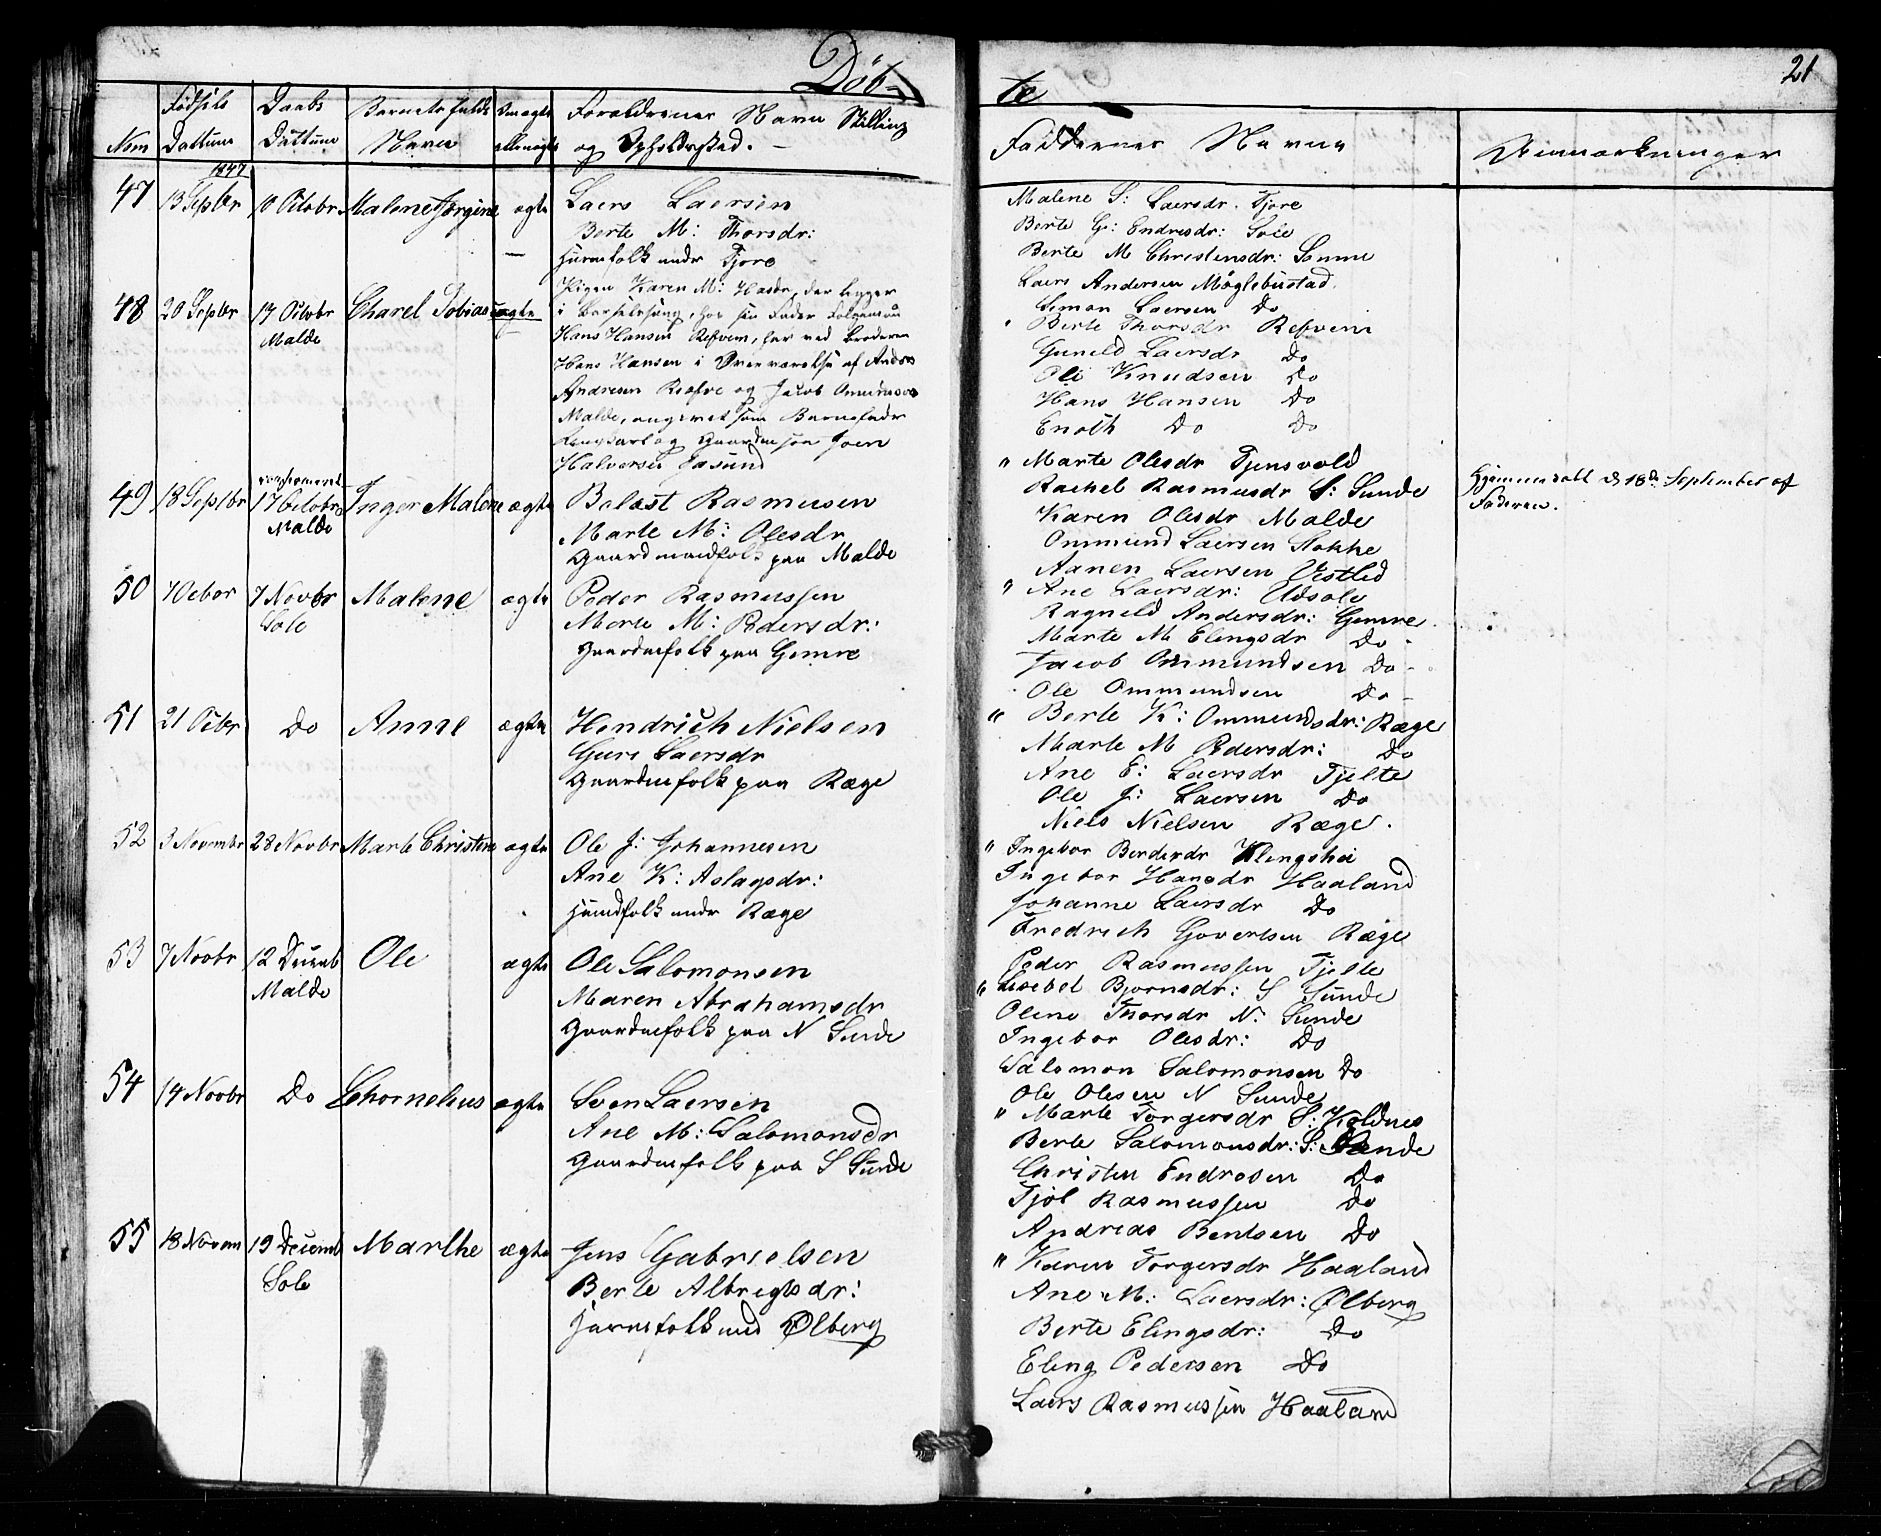 Døb-
te
21
Nom
Fødsels Dattum
Daabs Dattum
Barnets fulde Navn
Om ægte eller uægte
Forældrenes Navn Stilling
og Opholdssted.
Faddernes Navne
Anmærkninger
1847
47 13 Septbr 10 Octobr Malene Jørgine ægte
Laers Laersen
Berte M: Thorsdr:
Huusfolk under Tjore
Malene S: Laersdr. Tjore
Berte G: Endresdr: Sole
Berte M Christensdr: Sømme
Laers Andersen Møglebustad
Simon Laersen Do
48 20 Septbr 17 Octobr Malde Charel Tobias uægte
Pigen Karen M: Hansdr, der ligger
i Barselseng, hos sin Fader Folgeman
Hans Hansen Refvem, har ved Broderen
Hans Hansen i Overværelse af Anders
Andresen Ræfve og Jacob Ommunsen
Malde, angivet som Barnefader
Ungkarl og Gaardmsøn Joen
Halversen Jasund
" Berte Thorsdr Refvem
Guneld Laersdr Do
Ole Knudsen Do
Hans Hansen Do
Enoth Do Do
49 18 Septbr 17 Octobr Malde Inger Malene ægte
Balast Rasmusen
Marte M: Olesdr
Gaardmandfolk paa Malde
" Marte Olesdr Tjensvold
Rachel Rasmusdr S: Sunde
Karen Olesdr Malde
Ommund Laersen Stokke
Aanen Laersen Vestled
Hjemmedøbt d 18de September af
Faderen.
50 7 Octbr 7 Novbr Sole Malene ægte
Peder Rasmussen
Marte M: Pedersdr:
Gaardmfolk paa Gimre
" Ane Laersdr: Udsole
Ragneld Andersdr: Gimre
Marte M Elingsdr Do -
Jacob Ommundsen Do -
Ole Ommundsen Do -
51 21 Octbr Do Anne ægte
Hendrich Nielsen
Guri Laersdr
Gaardmfolk paa Ræge
" Berte K: Ommundsdr: Ræge
Marte M Pedersdr: Do
Ane E: Laersdr Tjelte
Ole J: Laersen Do
Niels Nielsen Ræge.
52 3 Novembr 28 Novbr Marte Christine ægte
Ole J: Johannesen
Ane K: Aslagsdr:
Huusfolk under Ræge
" Ingebor Berderdr Klingshei
Ingebor Hansdr Haaland
Johanne Laersdr Do
Fredrich Govertsen Ræge
Peder Rasmussen Tjelte
53 7 Novbr 12 Decemb Malde Ole ægte
Ole Salomonsen
Maren Abrahamsdr
Gaardmfolk paa N Sunde
" Lisebet Bjornsdr: S Sunde
Oline Thorsdr N. Sunde
Ingebor Olesdr: Do
Salomon Salomonsen Do
Ole Olesen N Sunde
54 14 Novbr Do Chornelius ægte
Sven Laersen
Ane M: Salomonsdr
Gaardmfolk paa S Sunde
" Marte Torgersdr S: Koldnes
Berte Salomonsdr: S: Sunde
Christen Endresen Do
Tjøl Rasmussen Do
Andreas Bentsen Do
55 18 Novem 19 Decemb Sole Marthe ægte
Jens Gabrielsen
Berte Albregtsdr:
Huusfolk und Ølberg
" Karen Torgersdr Haaland
Ane M: Laersdr: Ølberg
Berte Elingsdr: Do
Eling Pedersen Do
Laers Rasmussen Haaland